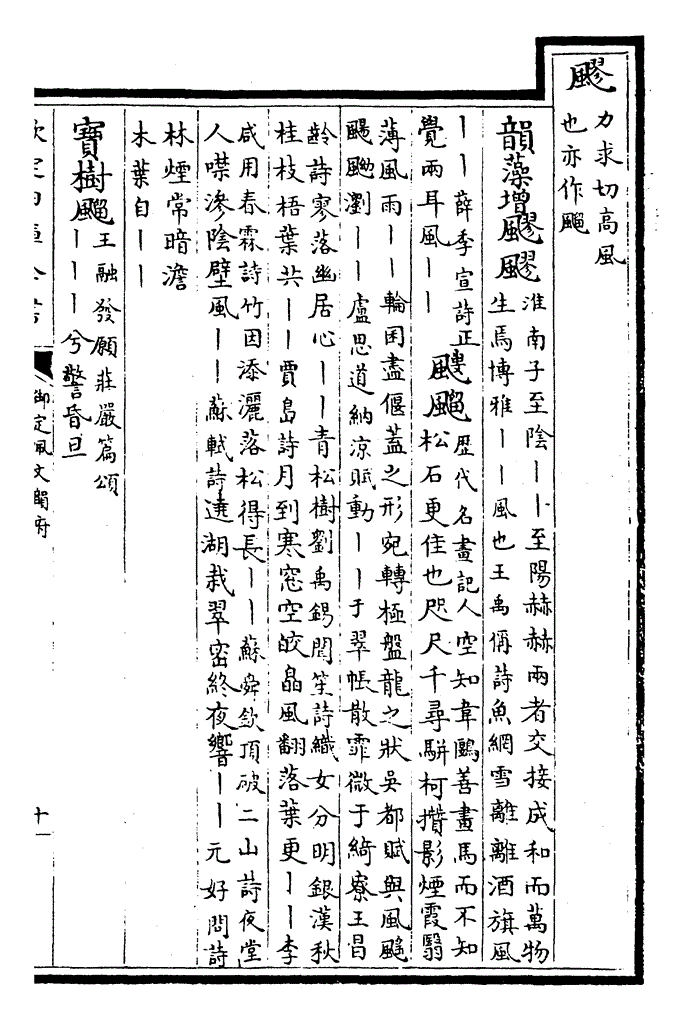 飂
力求切高風
也亦作飀
韻藻增飂飂
淮南子至陰丨丨至陽赫赫兩者交接成和而萬物
生焉博雅丨丨風也王禹偁詩魚網雪離離酒旗風
丨丨薛季宣詩正
覺兩耳風丨丨
飀
歴代名畫記人空知韋鷗善畫馬而不知
松石更佳也咫尺千尋駢柯攢影煙霞翳
薄風雨丨丨輪囷盡偃葢之形宛轉極盤龍之狀吳都賦與風飈
颺颲瀏丨丨盧思道納凉賦動丨丨于翠帳散霏微于綺寮王昌
齡詩寥落幽居心丨丨青松樹劉禹錫聞笙詩織女分明銀漢秋
桂枝梧葉共丨丨賈島詩月到寒窓空皎皛風翻落葉更丨丨李
咸用春霖詩竹因添灑落松得長丨丨蘇舜欽頂破二山詩夜堂
人噤滲陰壁風丨丨蘇軾詩遶湖栽翠密終夜響丨丨元好問詩
林煙常暗澹
木葉自丨丨
寶樹飀
王融發願莊嚴篇頌
丨丨丨兮警昏旦
御定佩文韻府
十一